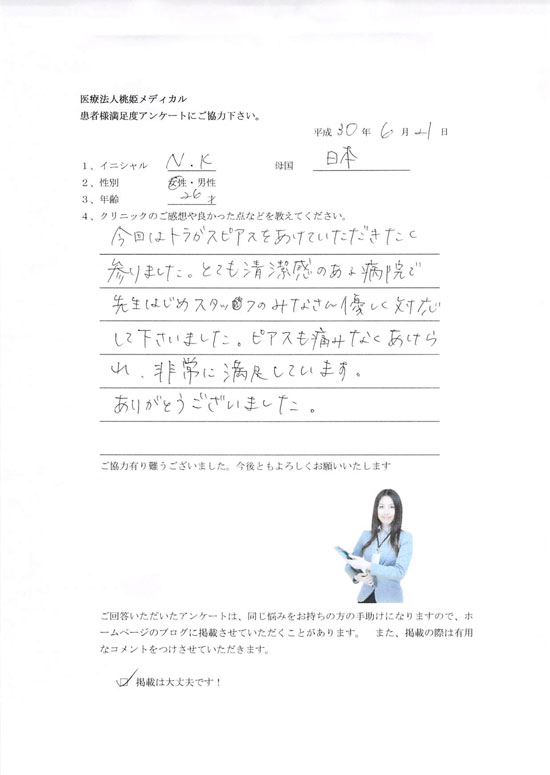 医療法人桃姫メディカル
患者様満足度アンケートにご協力下さい。
平成 30 年 6 月 21 日
1、イニシャル N.K 母国 日本
2、性別 女性・男性
3、年齢 26 才
4、クリニックのご感想や良かった点などを教えてください。
今回はトラガスピアスをあけていただきたく
参りました。とても清潔感のある病院で
先生はじめスタッフのみなさん優しく対応
して下さいました。ピアスも痛みなくあけら
れ、非常に満足しています。
ありがとうございました。
ご協力有り難うございました。今後ともよろしくお願いいたします
ご回答いただいたアンケートは、同じ悩みをお持ちの方の手助けになりますので、ホ
ームページのブログに掲載させていただくことがあります。 また、掲載の際は有用
なコメントをつけさせていただきます。
掲載は大丈夫です！